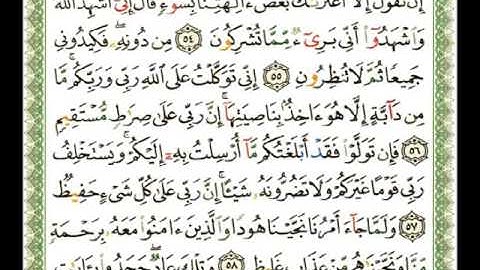 إِن نَّقُولُ إِلَّا ٱعْتَرَىٰكَ بَعْضُ ءَالِهَتِنَا بِسُوٓءٍ ۗ قَالَ إِنِّىٓ أُشْهِدُ ٱللَّهَ
وَٱشْهَدُوٓا۟ أَنِّى بَرِىٓءٌ مِّمَّا تُشْرِكُونَ ٥٤ مِن دُونِهِۦ ۖ فَكِيدُونِى
جَمِيعًا ثُمَّ لَا تُنظِرُونِ ٥٥ إِنِّى تَوَكَّلْتُ عَلَى ٱللَّهِ رَبِّى وَرَبِّكُم ۚ مَّا
مِن دَآبَّةٍ إِلَّا هُوَ ءَاخِذٌۢ بِنَاصِيَتِهَآ ۚ إِنَّ رَبِّى عَلَىٰ صِرَٰطٍ مُّسْتَقِيمٍ
٥٦ فَإِن تَوَلَّوْا۟ فَقَدْ أَبْلَغْتُكُم مَّآ أُرْسِلْتُ بِهِۦٓ إِلَيْكُمْ ۚ وَيَسْتَخْلِفُ
رَبِّى قَوْمًا غَيْرَكُمْ وَلَا تَضُرُّونَهُۥ شَيْـًٔا ۚ إِنَّ رَبِّى عَلَىٰ كُلِّ شَىْءٍ حَفِيظٌ
٥٧ وَلَمَّا جَآءَ أَمْرُنَا نَجَّيْنَا هُودًا وَٱلَّذِينَ ءَامَنُوا۟ مَعَهُۥ بِرَحْمَةٍ
مِّنَّا وَنَجَّيْنَٰهُم مِّنْ عَذَابٍ غَلِيظٍ ٥٨ وَتِلْكَ عَادٌ ۖ جَحَدُوا۟ بِـَٔايَٰتِ